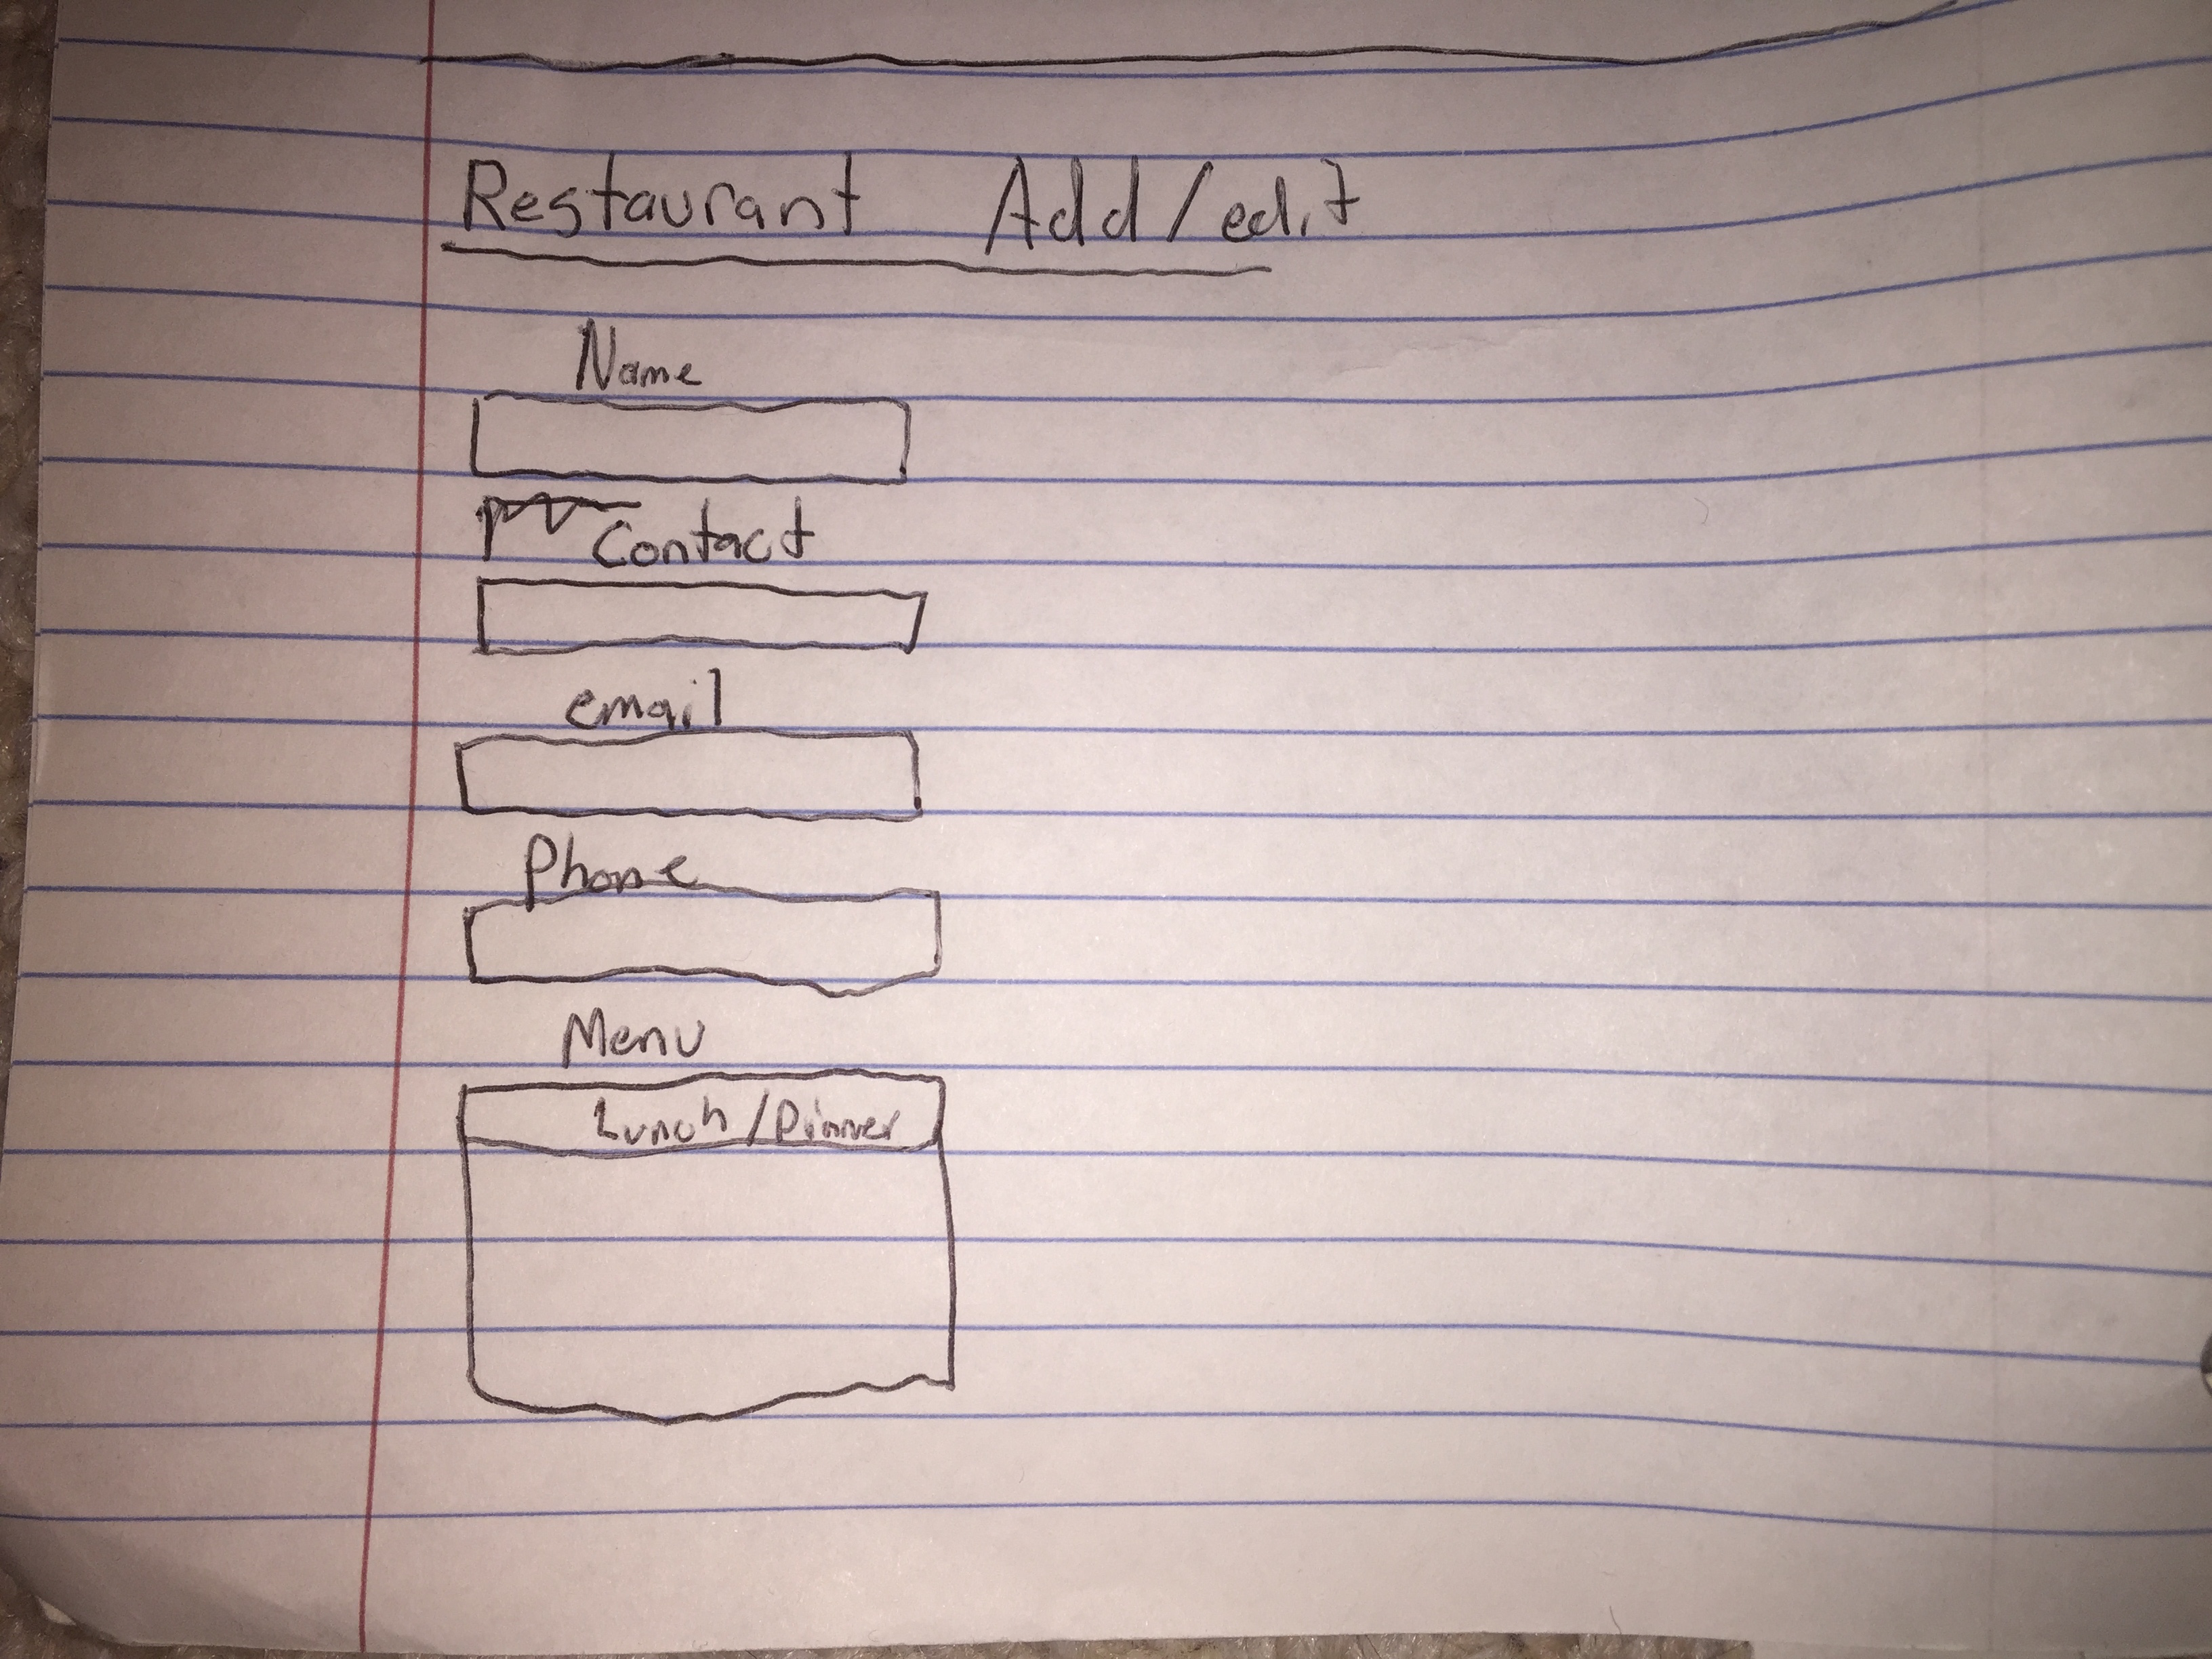 Restaurant Add/edit
Name
Contact
email
Phone
Menu
Lunch/Dinner